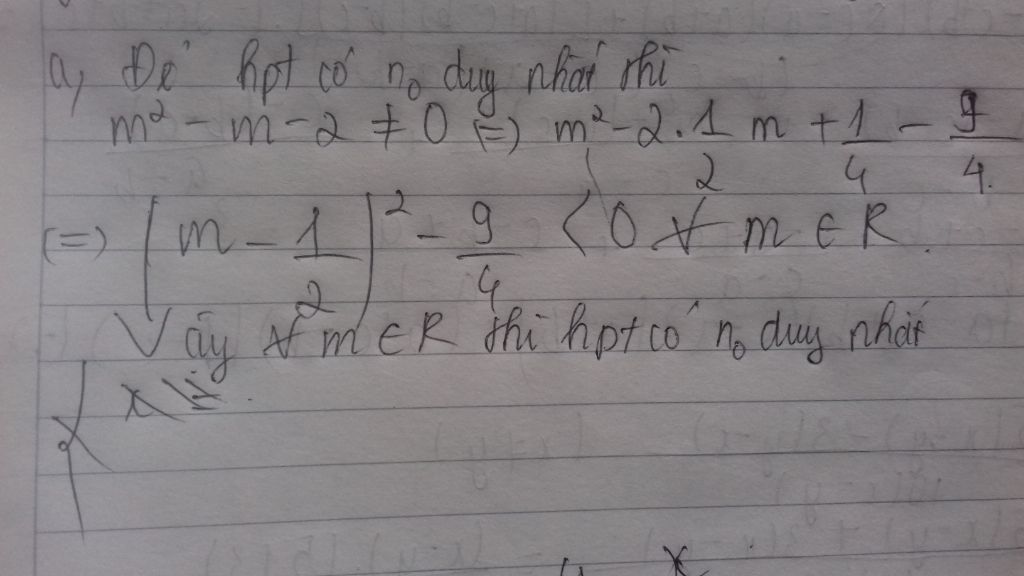 a, Để hpt có n₀ duy nhất thì
m² - m - 2 ≠ 0 (=) m² - 2.1/2 m + 1/4 - 9/4.
(=) (m - 1/2)² - 9/4 < 0 ∀ m ∈ R.
Vậy ∀ m ∈ R thì hpt có n₀ duy nhất
{ x
x